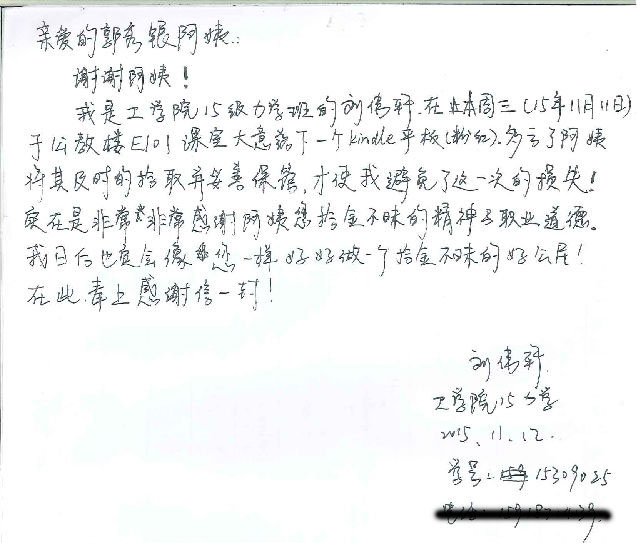 亲爱的郭秀银阿姨:
谢谢阿姨!
我是工学院15级力学班的刘伟轩,在本周三(15年11月11日)
于公教楼E101课室大意落下一个kindle平板(粉红),多亏了阿姨
将其及时的拾取并妥善保管,才使我避免了这一次的损失!
实在是非常非常感谢阿姨您拾金不昧的精神与职业道德。
我日后也定会像您一样好好做一个拾金不昧的好公民!
在此,奉上感谢信一封!
刘伟轩
工学院15力学
2015.11.12.
学号:15309025